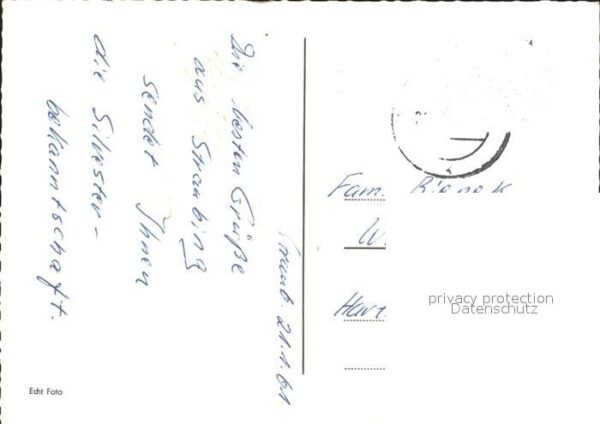 Straub. 21.1.61
Die besten Grüße
aus Straubing
sendet Ihnen
die Silvester-
bekanntschaft.
Fam.
W.
Hart
privacy protection
Datenschutz
Echt Foto
4